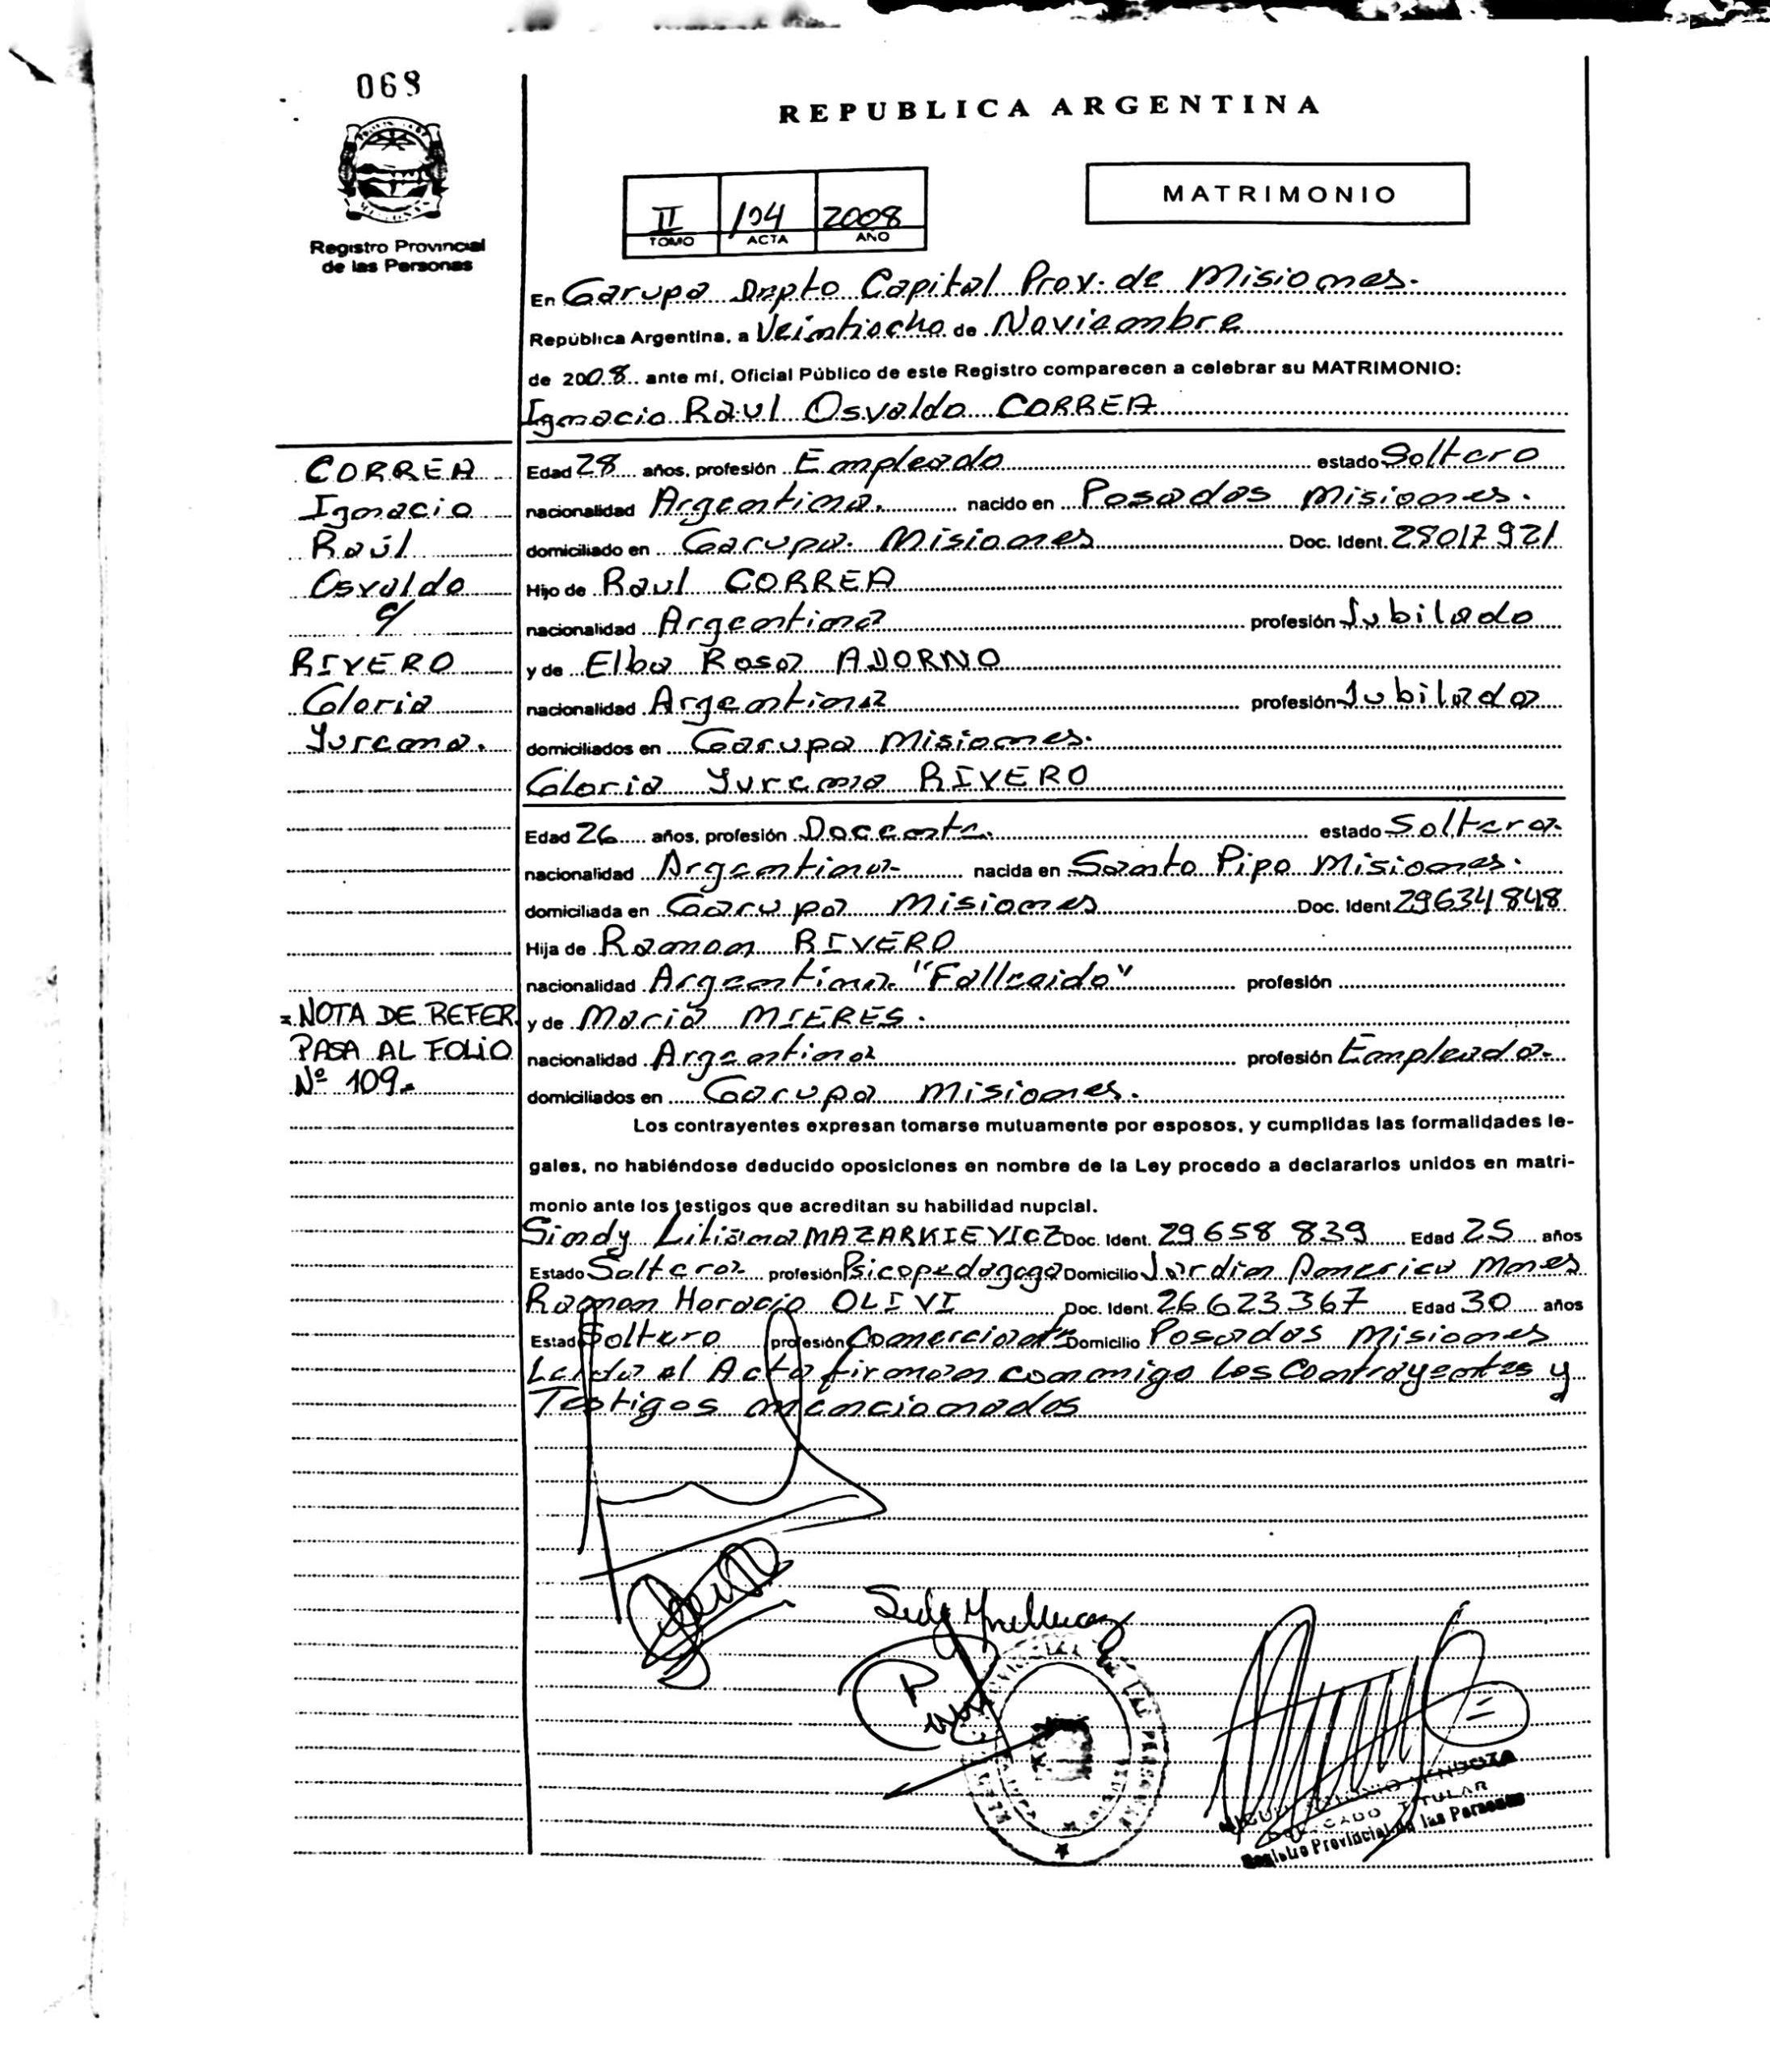 068
REPUBLICA ARGENTINA
MATRIMONIO
II 104 2008
TOMO ACTA AÑO
Registro Provincial
de las Personas
En Garupa Depto Capital Prov. de Misiones.
República Argentina, a Veintiocho de Noviembre
de 2008 ante mí, Oficial Público de este Registro comparecen a celebrar su MATRIMONIO:
Ignacio Raul Osvaldo CORREA
CORREA
Ignacio
Raúl
Osvaldo
c/
RIVERO
Gloria
Yurema.
Edad 28 años, profesión Empleado estado Soltero
nacionalidad Argentina. nacido en Posadas Misiones.
domiciliado en Garupa. Misiones Doc. Ident. 28017921
Hijo de Raul CORREA
nacionalidad Argentina profesión Jubilado
y de Elba Rosa ADORNO
nacionalidad Argentina profesión Jubilada
domiciliados en Garupa Misiones.
Gloria Yurema RIVERO
Edad 26 años, profesión Docente. estado Soltera
nacionalidad Argentina nacida en Santo Pipo Misiones.
domiciliada en Garupa Misiones Doc. Ident 29634848
Hija de Ramon RIVERO
nacionalidad Argentina "Fallecido" profesión
y de Maria MIERES.
nacionalidad Argentina profesión Empleada
domiciliados en Garupa Misiones.
= NOTA DE REFER.
PASA AL FOLIO
Nº 109.-
Los contrayentes expresan tomarse mutuamente por esposos, y cumplidas las formalidades le-
gales, no habiéndose deducido oposiciones en nombre de la Ley procedo a declararlos unidos en matri-
monio ante los testigos que acreditan su habilidad nupcial.
Sindy Liliana MAZARKIEVICZ Doc. Ident. 29658839 Edad 25 años
Estado Soltera profesión Psicopedagoga Domicilio Jardin America Mnes
Ramon Horacio OLIVI Doc. Ident. 26623367 Edad 30 años
Estado Soltero profesión Comerciante Domicilio Posadas Misiones
Leida el Acta firman conmigo los Contrayentes y
Testigos mencionados
MENDOZA
DELEGADO TITULAR
Registro Provincial de las Personas